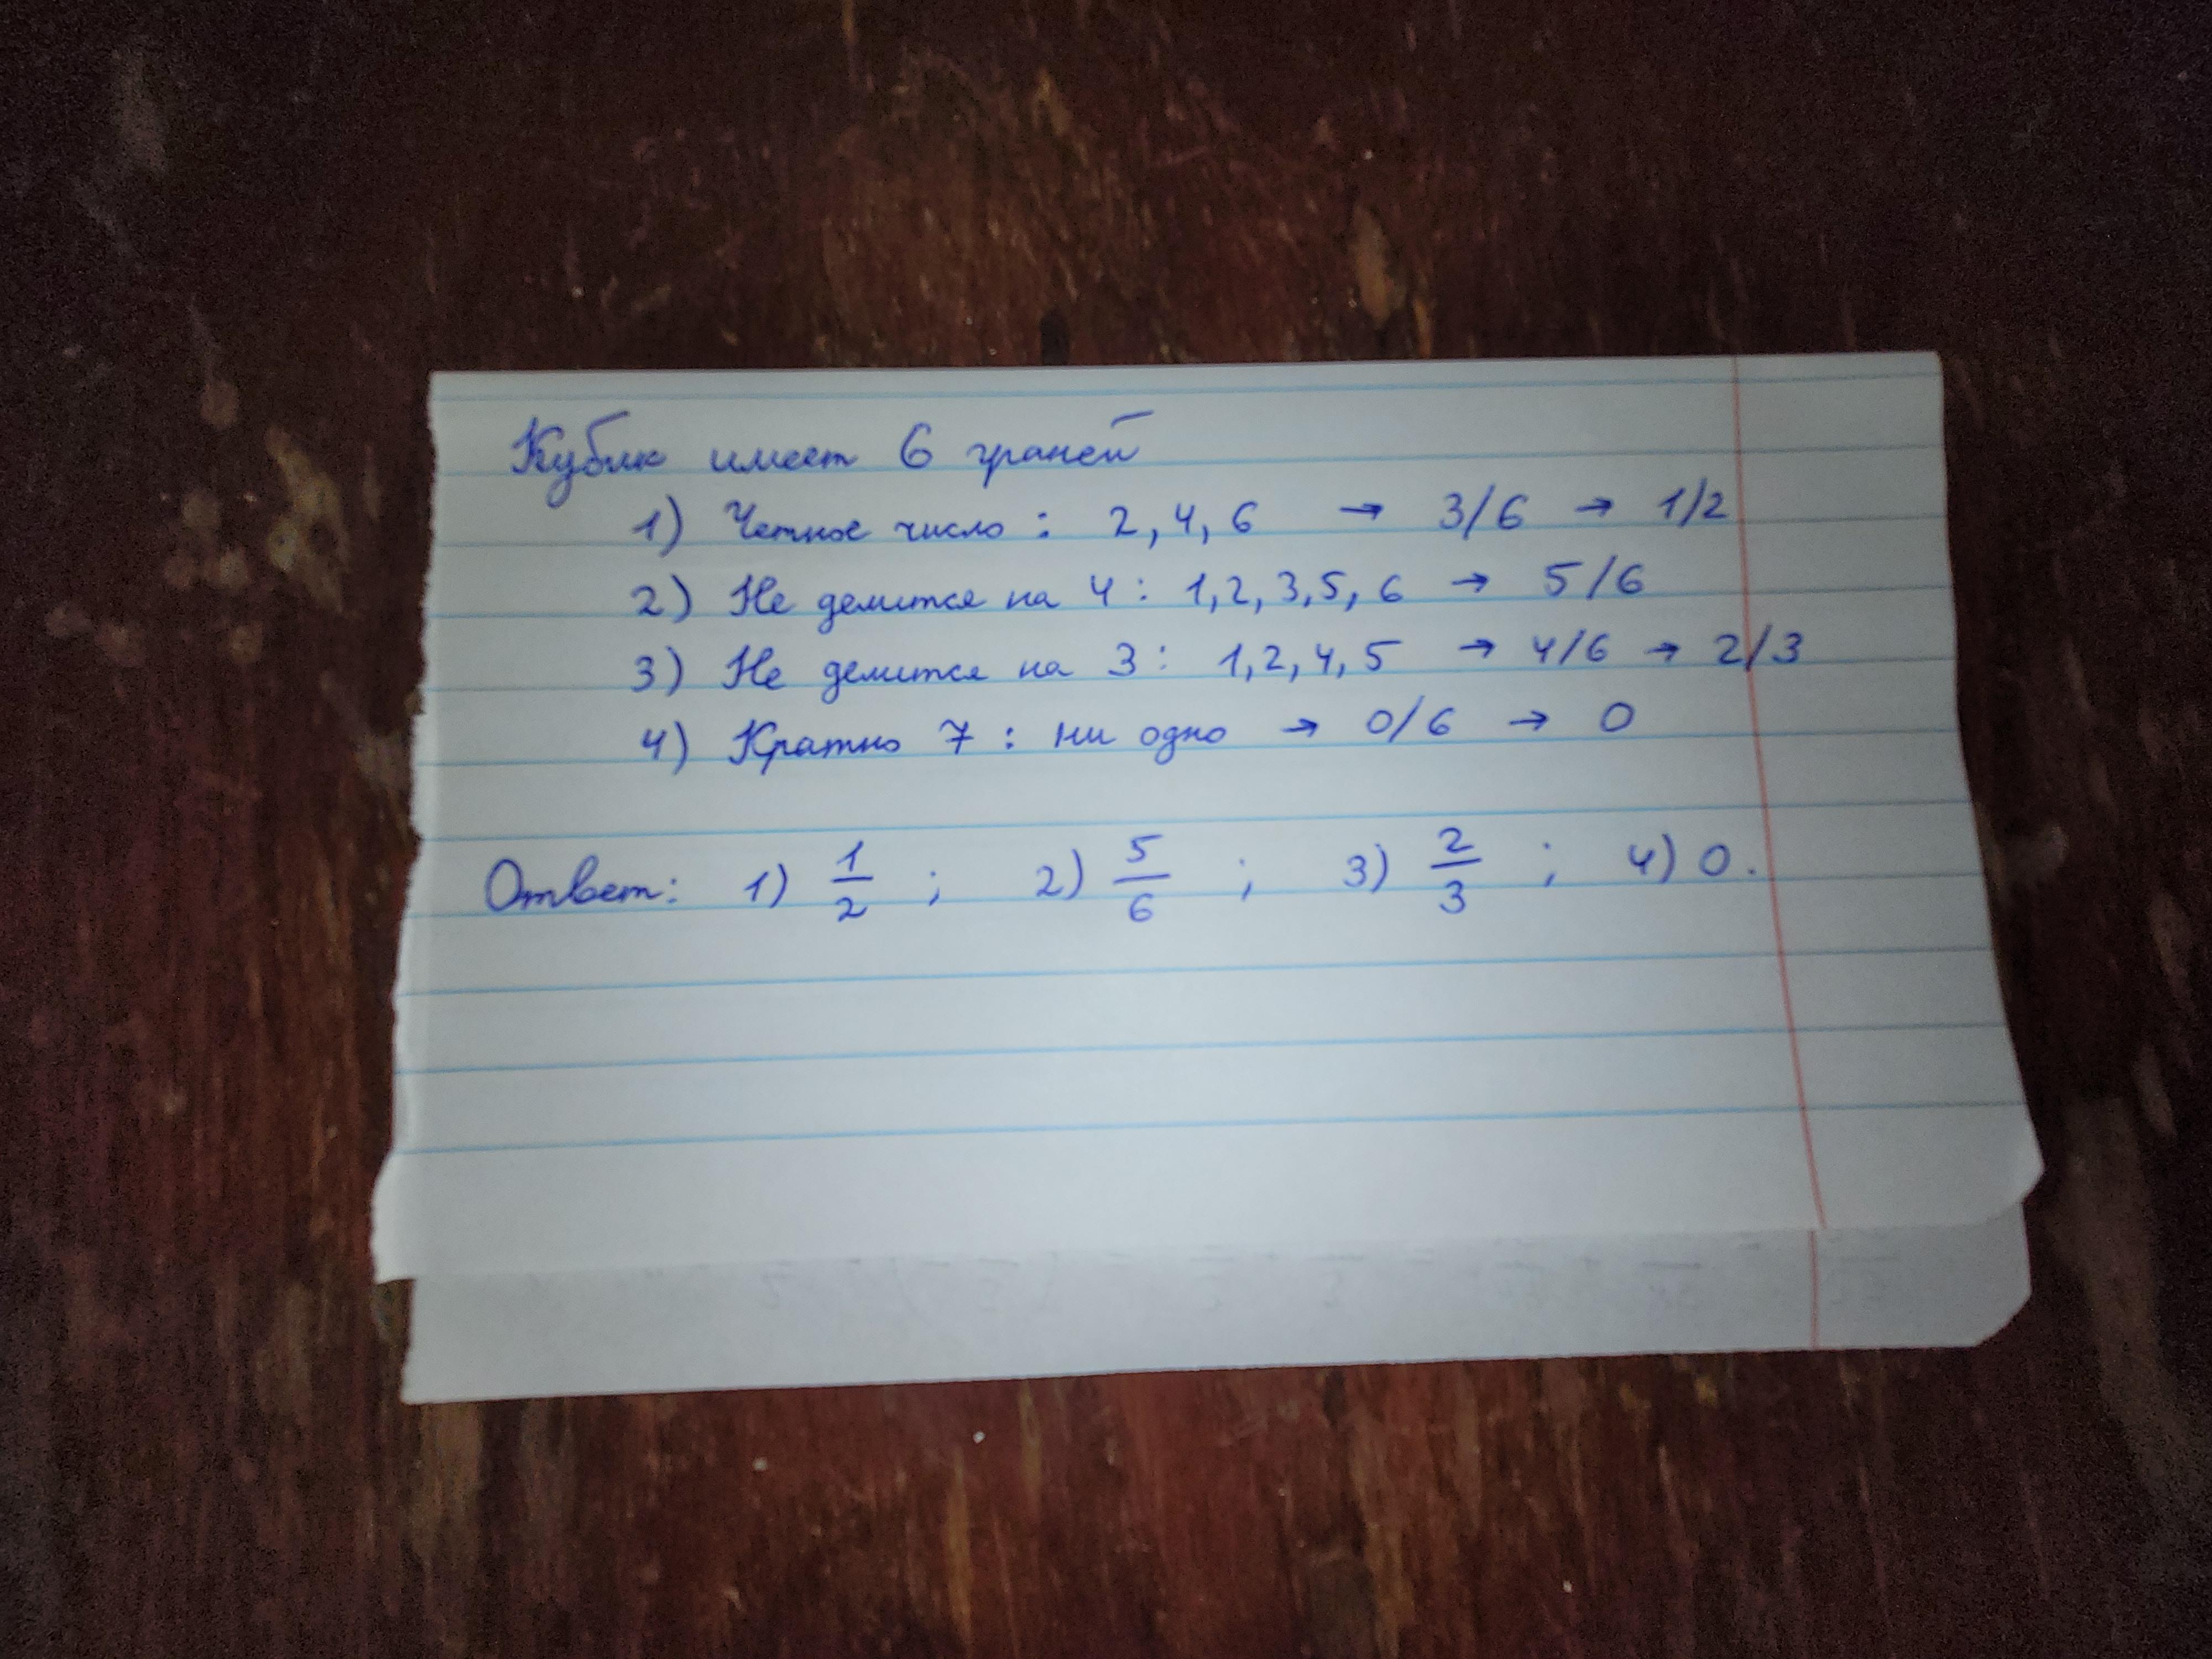 Кубик имеет 6 граней
1) Четное число : 2, 4, 6 → 3/6 → 1/2
2) Не делится на 4 : 1, 2, 3, 5, 6 → 5/6
3) Не делится на 3 : 1, 2, 4, 5 → 4/6 → 2/3
4) Кратно 7 : ни одно → 0/6 → 0
Ответ: 1) 1/2 ; 2) 5/6 ; 3) 2/3 ; 4) 0.